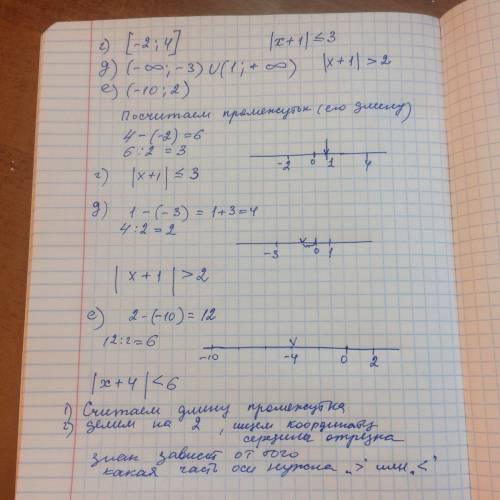 г) [-2; 4] |x+1| ≤ 3
д) (-∞; -3) ∪ (1; +∞) |x+1| > 2
е) (-10; 2)
Посчитаем промежуток (его длину)
4 - (-2) = 6
6 : 2 = 3
-2 0 1 4
г) |x+1| ≤ 3
д) 1 - (-3) = 1+3 = 4
4 : 2 = 2
-3 0 1
|x+1| > 2
е) 2 - (-10) = 12
12 : 2 = 6
-10 -4 0 2
|x+4| < 6
1) Считаем длину промежутка
2) делим на 2, ищем координаты
середины отрезка
знак зависит от того
какая часть оси нужна ">" или "<"